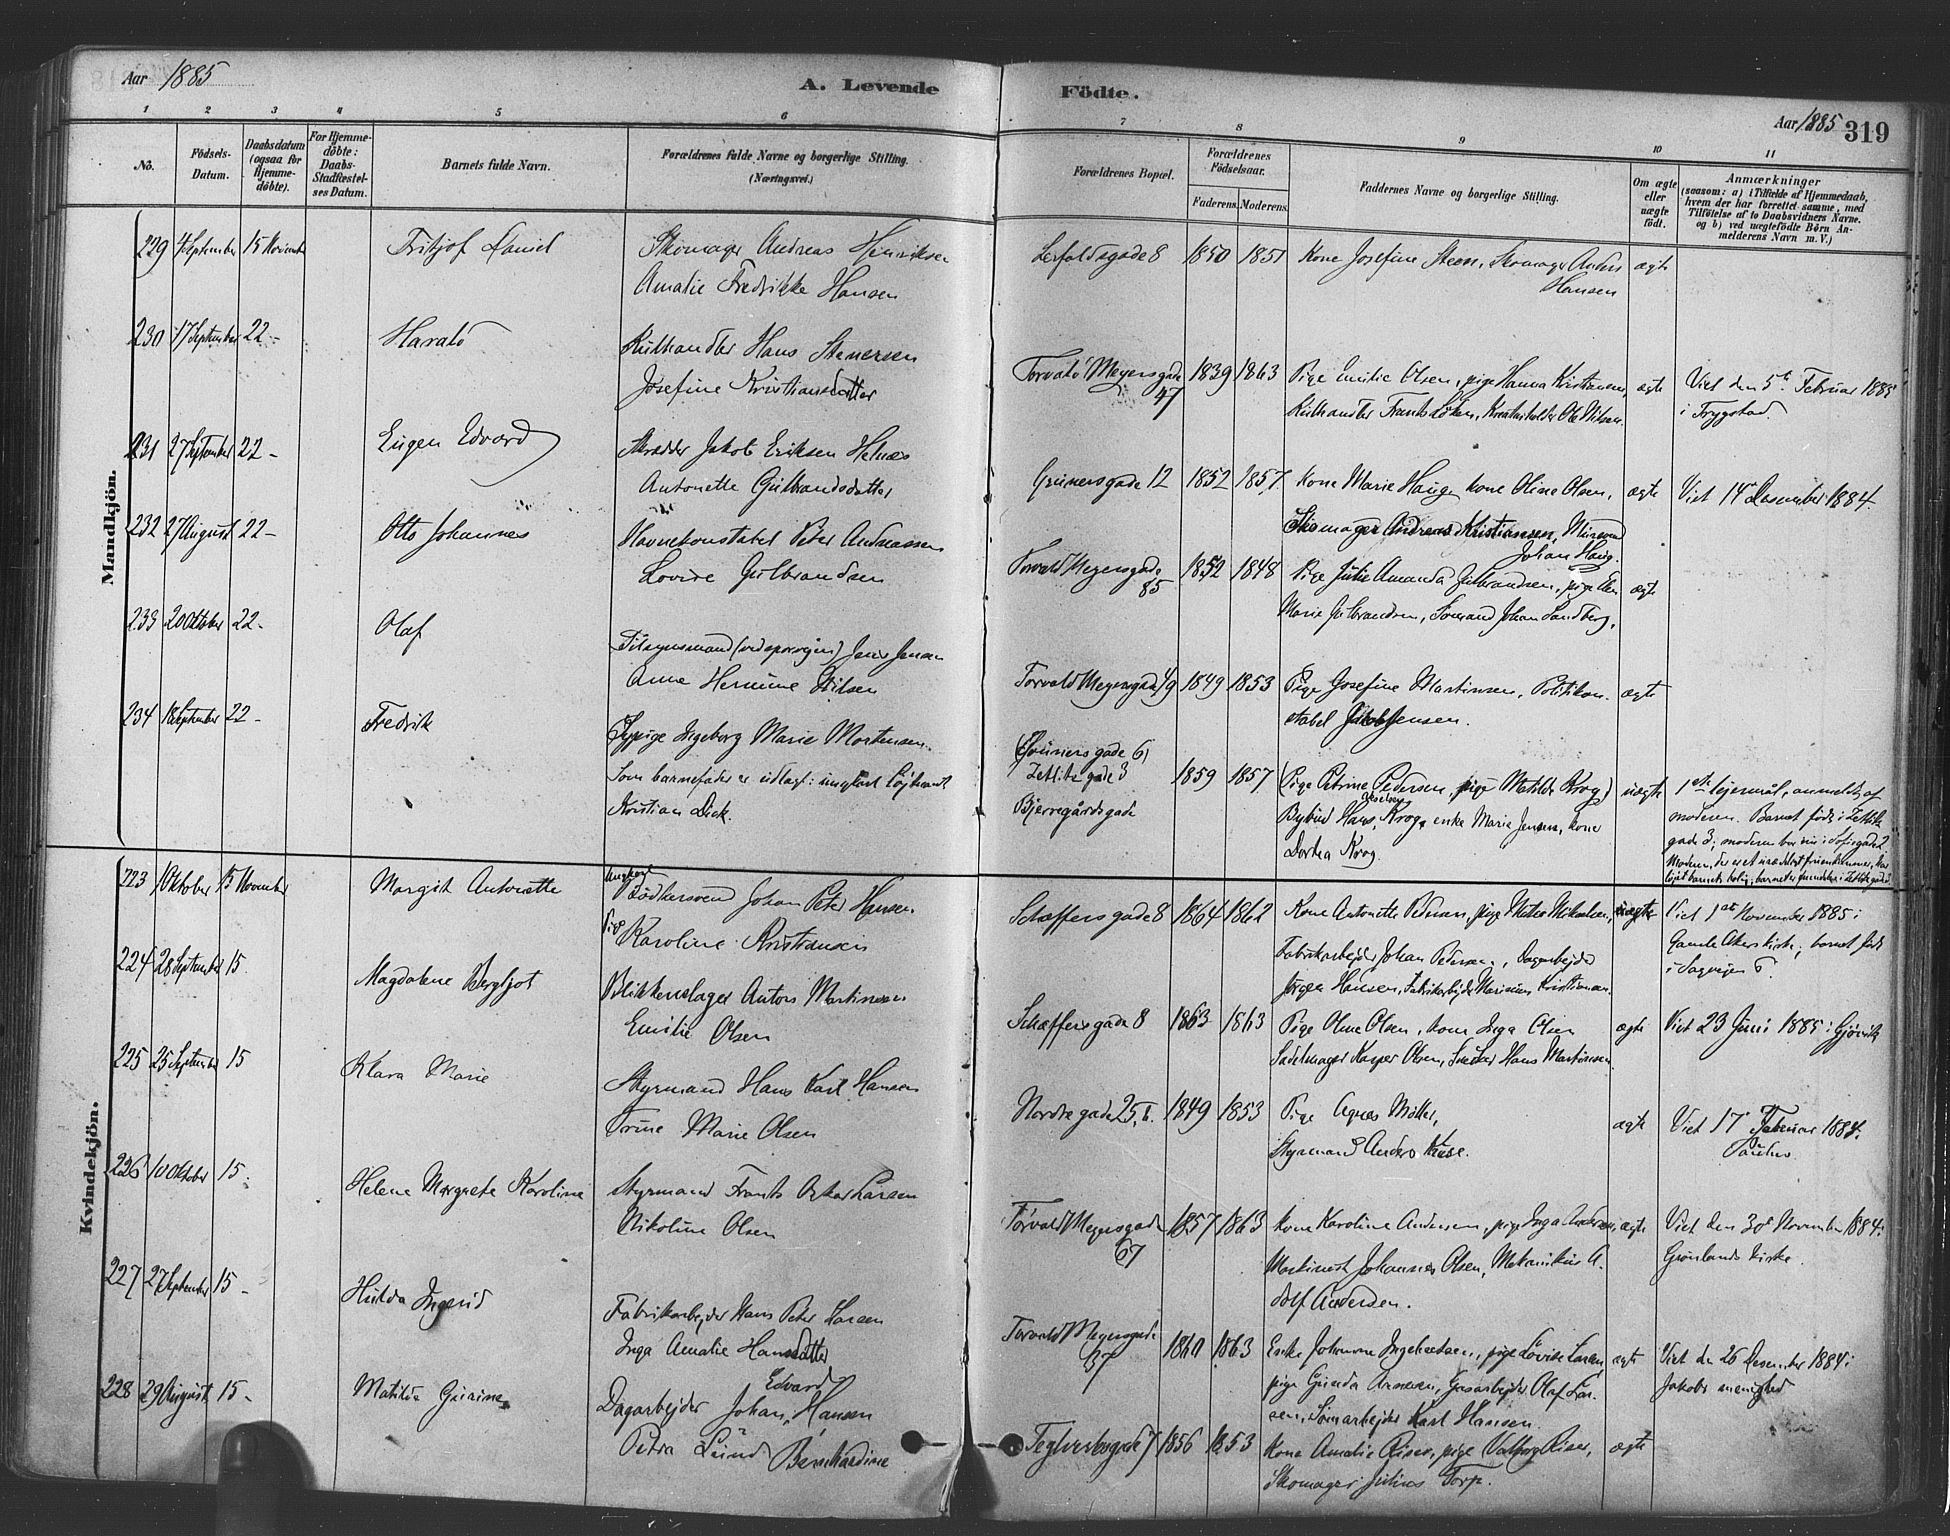 Aar 1885
A. Levende
Födte.
Aar 1885
319
1 2 3 4 5 6 7 8 9 10 11
No.
Födsels-
Datum.
Daabsdatum
(ogsaa for
Hjemme-
döbte).
For Hjemme-
döbte:
Daabs-
Stadfæstel-
ses Datum.
Barnets fulde Navn.
Forældrenes fulde Navne og borgerlige Stilling.
(Næringsvei.)
Forældrenes Bopæl.
Forældrenes
Födselsaar.
Faderens.
Moderens.
Faddernes Navne og borgerlige Stilling.
Om ægte
eller
uægte
födt.
Anmærkninger
(saasom: a) i Tilfælde af Hjemmedaab,
hvem der har forrettet samme, med
Tilföielse af to Daabsvidners Navne.
og b) ved uægtefödte Börn An-
melderens Navn m. V.)
Mandkjön.
229 4 September 15 November Fritjof Daniel Skomager Andreas Henriksen
Amalie Fredrikke Hansen
8 1850 1851 Kone Josefine Steen, Skomager Anders
Hansen
ægte
230 17 September 22 - Harald Kulhandler Hans Stenersen
Josefine Kristiansdatter
Torvald Meyersgade
47
1839 1863 Pige Emilie Olsen, pige Hanna Kristiansen,
Kulhandler Frants Olsen, Ole Nilsen.
ægte
Viet den 5te Februar 1885
i Trygstad.
231 27 September 22 - Eugen Edvard Skrædder Jakob Eriksen Helnæs
Antonette Gulbrandsdatter
Grünersgade 12 1852 1857 Kone Marie Haug, kone Oline Olsen,
Skomager Andreas Kristiansen,
Johan Haug.
ægte
Viet 14 Desember 1884.
232 27 August 22 - Otto Johannes Havnekonstabel Peter Andreassen
Lovise Gulbrandsen
Torvald Meyersgade
85
1852 1848 Pige Julie Amanda Gulbrandsen, pige
Marie Gulbrandsen, Sömand Johan Sandberg.
ægte
233 20 Oktober 22 - Olaf Tilsynsmand (ved sporvejen) Jens Jensen
Anne Hermine Nilsen
Torvald Meyersgade 49 1849 1853 Pige Josefine Martinsen, Politikon-
stabel Jakob Jensen.
ægte
234 18 September 22 - Fredrik Sypige Ingeborg Marie Mortensen.
Som barnefader er udlagt: ungkarl Löjtnant
Kristian Dick.
(Grünersgade 6)
Zetlitzgade 3
Bjerregårdsgade
1859 1857 (Pige Petrine Pedersen, pige Matilde Krog)
Bybud Hans Krog, enke Marie Jensen, kone
Dortea Krog.
uægte
1ste lejermål, anmeldt af
moderen. Barnet född i Zetlitz
gade 3; moderen bor nu i Sofiegade 2
Kvindekjön.
223 1 Oktober 15 November Margit Antonette Ungkarl
Bödkersvend Johan Peter Hansen
Pige Karoline Kristiansen
Schæffersgade 8 1864 1862 Kone Antonette Pedersen, pige
Fabrikarbejder Johan Pedersen, Dagarbejder
Jörgen Hansen, Fabrikarbejder Marinius Kristiansen.
uægte
Viet 1ste November 1885 i
Gamle Akers kirke; barnet född
i Sagvejen 6.
224 28 September 15. Magdalene Bergljot Blikkenslager Anton Martinsen
Emilie Olsen
Schæffersgade 8 1863 1863 Pige Oline Olsen, kone Inga Olsen
Sadelmager Kasper Olsen, Snedker Hans Martinsen
ægte
Viet 23 Juni 1885 i Gjövik
225 25 September 15 Klara Marie Styrmand Hans Karl Hansen
Trine Marie Olsen
Nordregade 25, 1849 1853 Pige Agnes Möller,
Styrmand Anders Kruse.
ægte
Viet 17 Februar 1884.
226 10 Oktober 15. Helene Margrete Karoline Styrmand Frants Oskar Larsen
Nikoline Olsen
Torvald Meyersgade
67
1857 1863 Kone Karoline Andersen, pige Inga Andersen,
Maskinist Johannes Olsen, Mekanikus A-
dolf Andersen.
ægte
Viet den 30te November 1884 i
Grönlands kirke.
227 27 September 15 - Hulda Ingerid Fabrikarbejder Hans Peter Larsen
Inga Amalie Hansdatter
Torvald Meyersgade
37
1860 1863 Enke Johanne Ingebretsen, pige Lovise Larsen
pige Gunda Arnesen, Gasarbejder Olaf Lar-
sen, Karl Hansen.
ægte
Viet den 26 Desember 1884 i
Jakobs menighed
228 29 August 15 - Matilde Guirine Dagarbejder Johan Edvard Hansen
Petra Lund Bernhardine
Teglverksgade 7 1856 1853 Kone Amalie Riser, pige Valborg Riser,
Skomager Julius Torp.
ægte